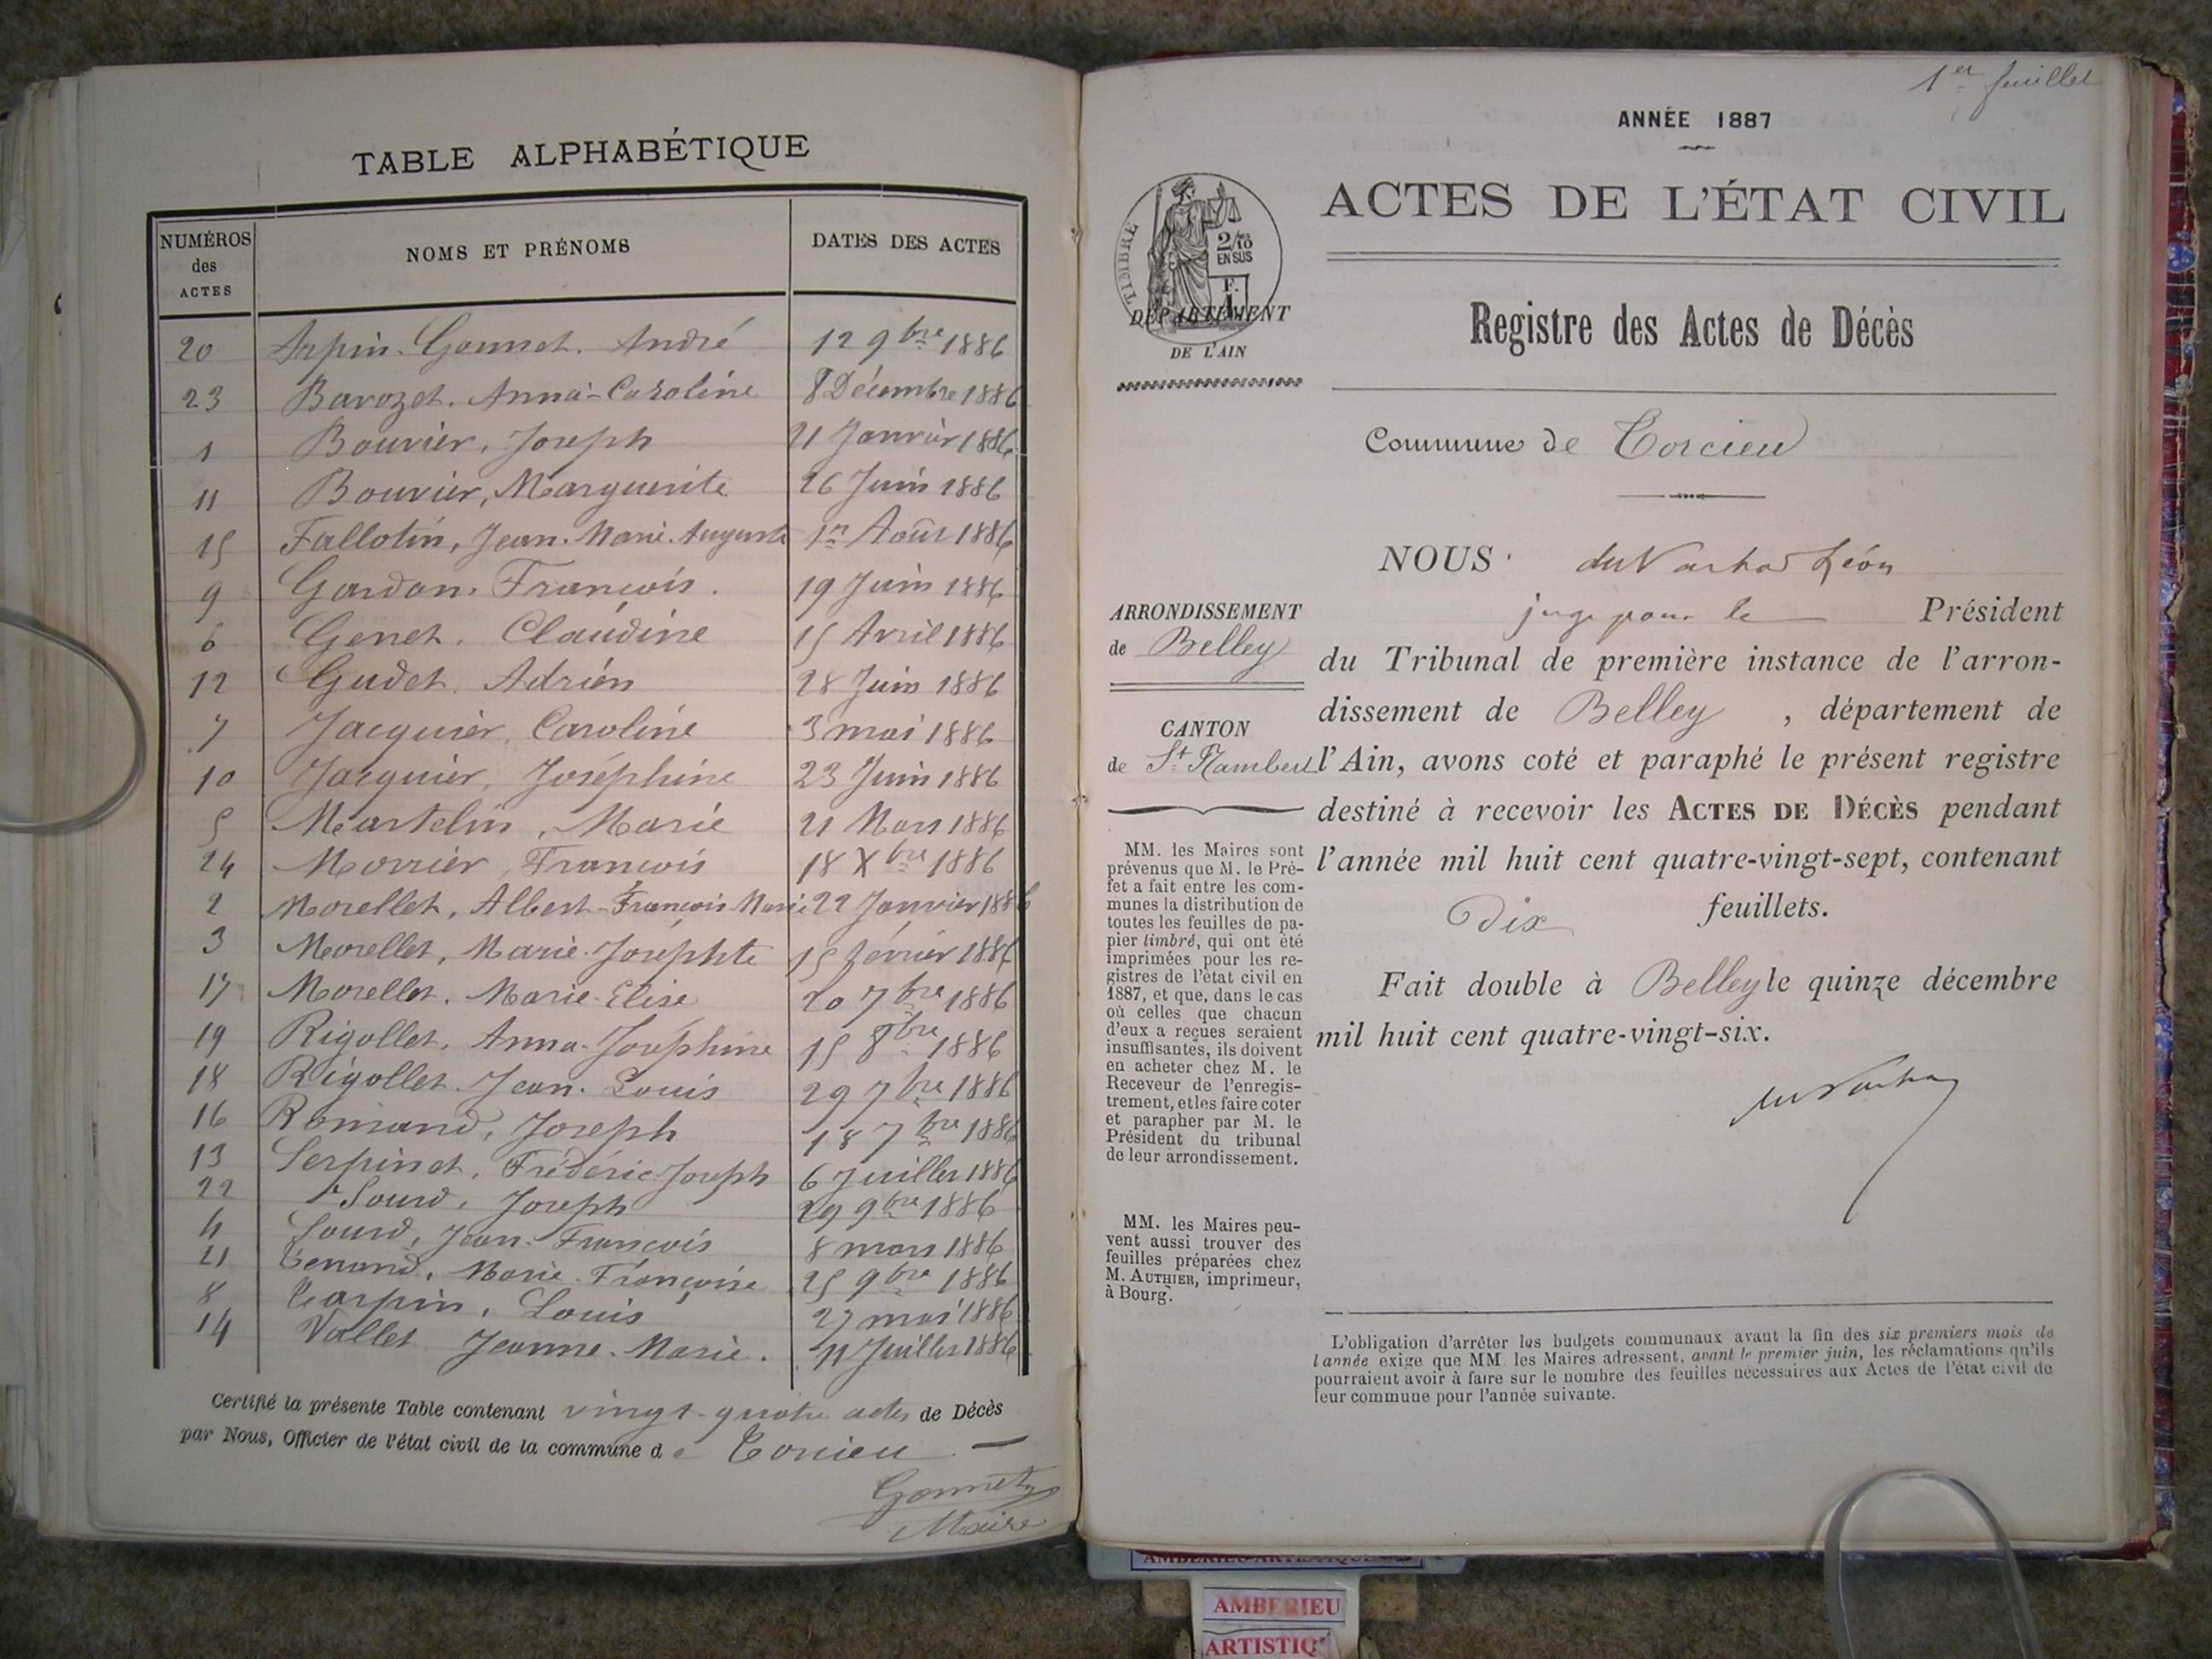 TABLE ALPHABÉTIQUE
NUMÉROS des ACTES NOMS ET PRÉNOMS DATES DES ACTES
20 Arpin-Gonnet. André 12 9bre 1886
23 Barozet. Anna-Caroline 8 Décembre 1886
1 Bouvier, Joseph 21 Janvier 1886
11 Bouvier, Marguerite 26 Juin 1886
15 Fallotin, Jean-Marie-Auguste 1er Août 1886
9 Gardon. François. 19 Juin 1886
6 Genet. Claudine 15 Avril 1886
12 Gudet. Adrien 28 Juin 1886
7 Jacquier. Caroline 3 mai 1886
10 Jacquier, Joséphine 23 Juin 1886
5 Martelin, Marie 21 Mars 1886
24 Morrier, François 18 Xbre 1886
2 Morellet, Albert-François Marie 22 Janvier 1886
3 Morellet, Marie-Joséphte 15 février 1886
17 Morellet. Marie-Elise 20 7bre 1886
19 Rigollet. Anna-Joséphine 15 8bre 1886
18 Rigollet. Jean-Louis 29 7bre 1886
16 Romand, Joseph 18 7bre 1886
13 Serpinet, Frédéric-Joseph 6 Juillet 1886
22 Sourd, Joseph 29 9bre 1886
4 Sourd, Jean-François 8 mars 1886
21 Tenand, Marie-Françoise 25 9bre 1886
8 Tarpin, Louis 27 mai 1886
14 Vallet Jeanne-Marie. 11 Juillet 1886
Certifié la présente Table contenant vingt-quatre actes de Décès
par Nous, Officier de l'état civil de la commune de Torcieu
Gonnet
Maire
1er feuillet
ANNÉE 1887
ACTES DE L'ÉTAT CIVIL
TIMBRE
2/10
EN SUS
F.
1
DÉPARTEMENT
DE L'AIN
Registre des Actes de Décès
Commune de Torcieu
ARRONDISSEMENT
de Belley
CANTON
de St Rambert
MM. les Maires sont
prévenus que M. le Pré-
fet a fait entre les com-
munes la distribution de
toutes les feuilles de pa-
pier timbré, qui ont été
imprimées pour les re-
gistres de l'état civil en
1887, et que, dans le cas
où celles que chacun
d'eux a reçues seraient
insuffisantes, ils doivent
en acheter chez M. le
Receveur de l'enregis-
trement, et les faire coter
et parapher par M. le
Président du tribunal
de leur arrondissement.
MM. les Maires peu-
vent aussi trouver des
feuilles préparées chez
M. AUTHIER, imprimeur,
à Bourg.
NOUS Léon
juge pour le Président
du Tribunal de première instance de l'arron-
dissement de Belley, département de
l'Ain, avons coté et paraphé le présent registre
destiné à recevoir les ACTES DE DÉCÈS pendant
l'année mil huit cent quatre-vingt-sept, contenant
Dix feuillets.
Fait double à Belley le quinze décembre
mil huit cent quatre-vingt-six.
L'obligation d'arrêter les budgets communaux avant la fin des six premiers mois de
l'année exige que MM. les Maires adressent, avant le premier juin, les réclamations qu'ils
pourraient avoir à faire sur le nombre des feuilles nécessaires aux Actes de l'état civil de
leur commune pour l'année suivante.
AMBERIEU ARTISTIQUE
AMBERIEU
ARTISTIQ